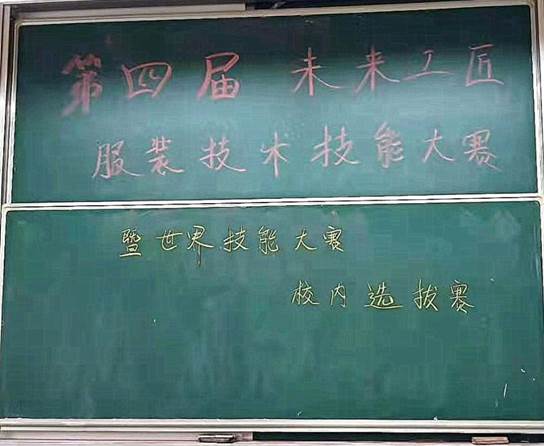 第四届 未来工匠
服装技术技能大赛
暨世界技能大赛
校内选拔赛